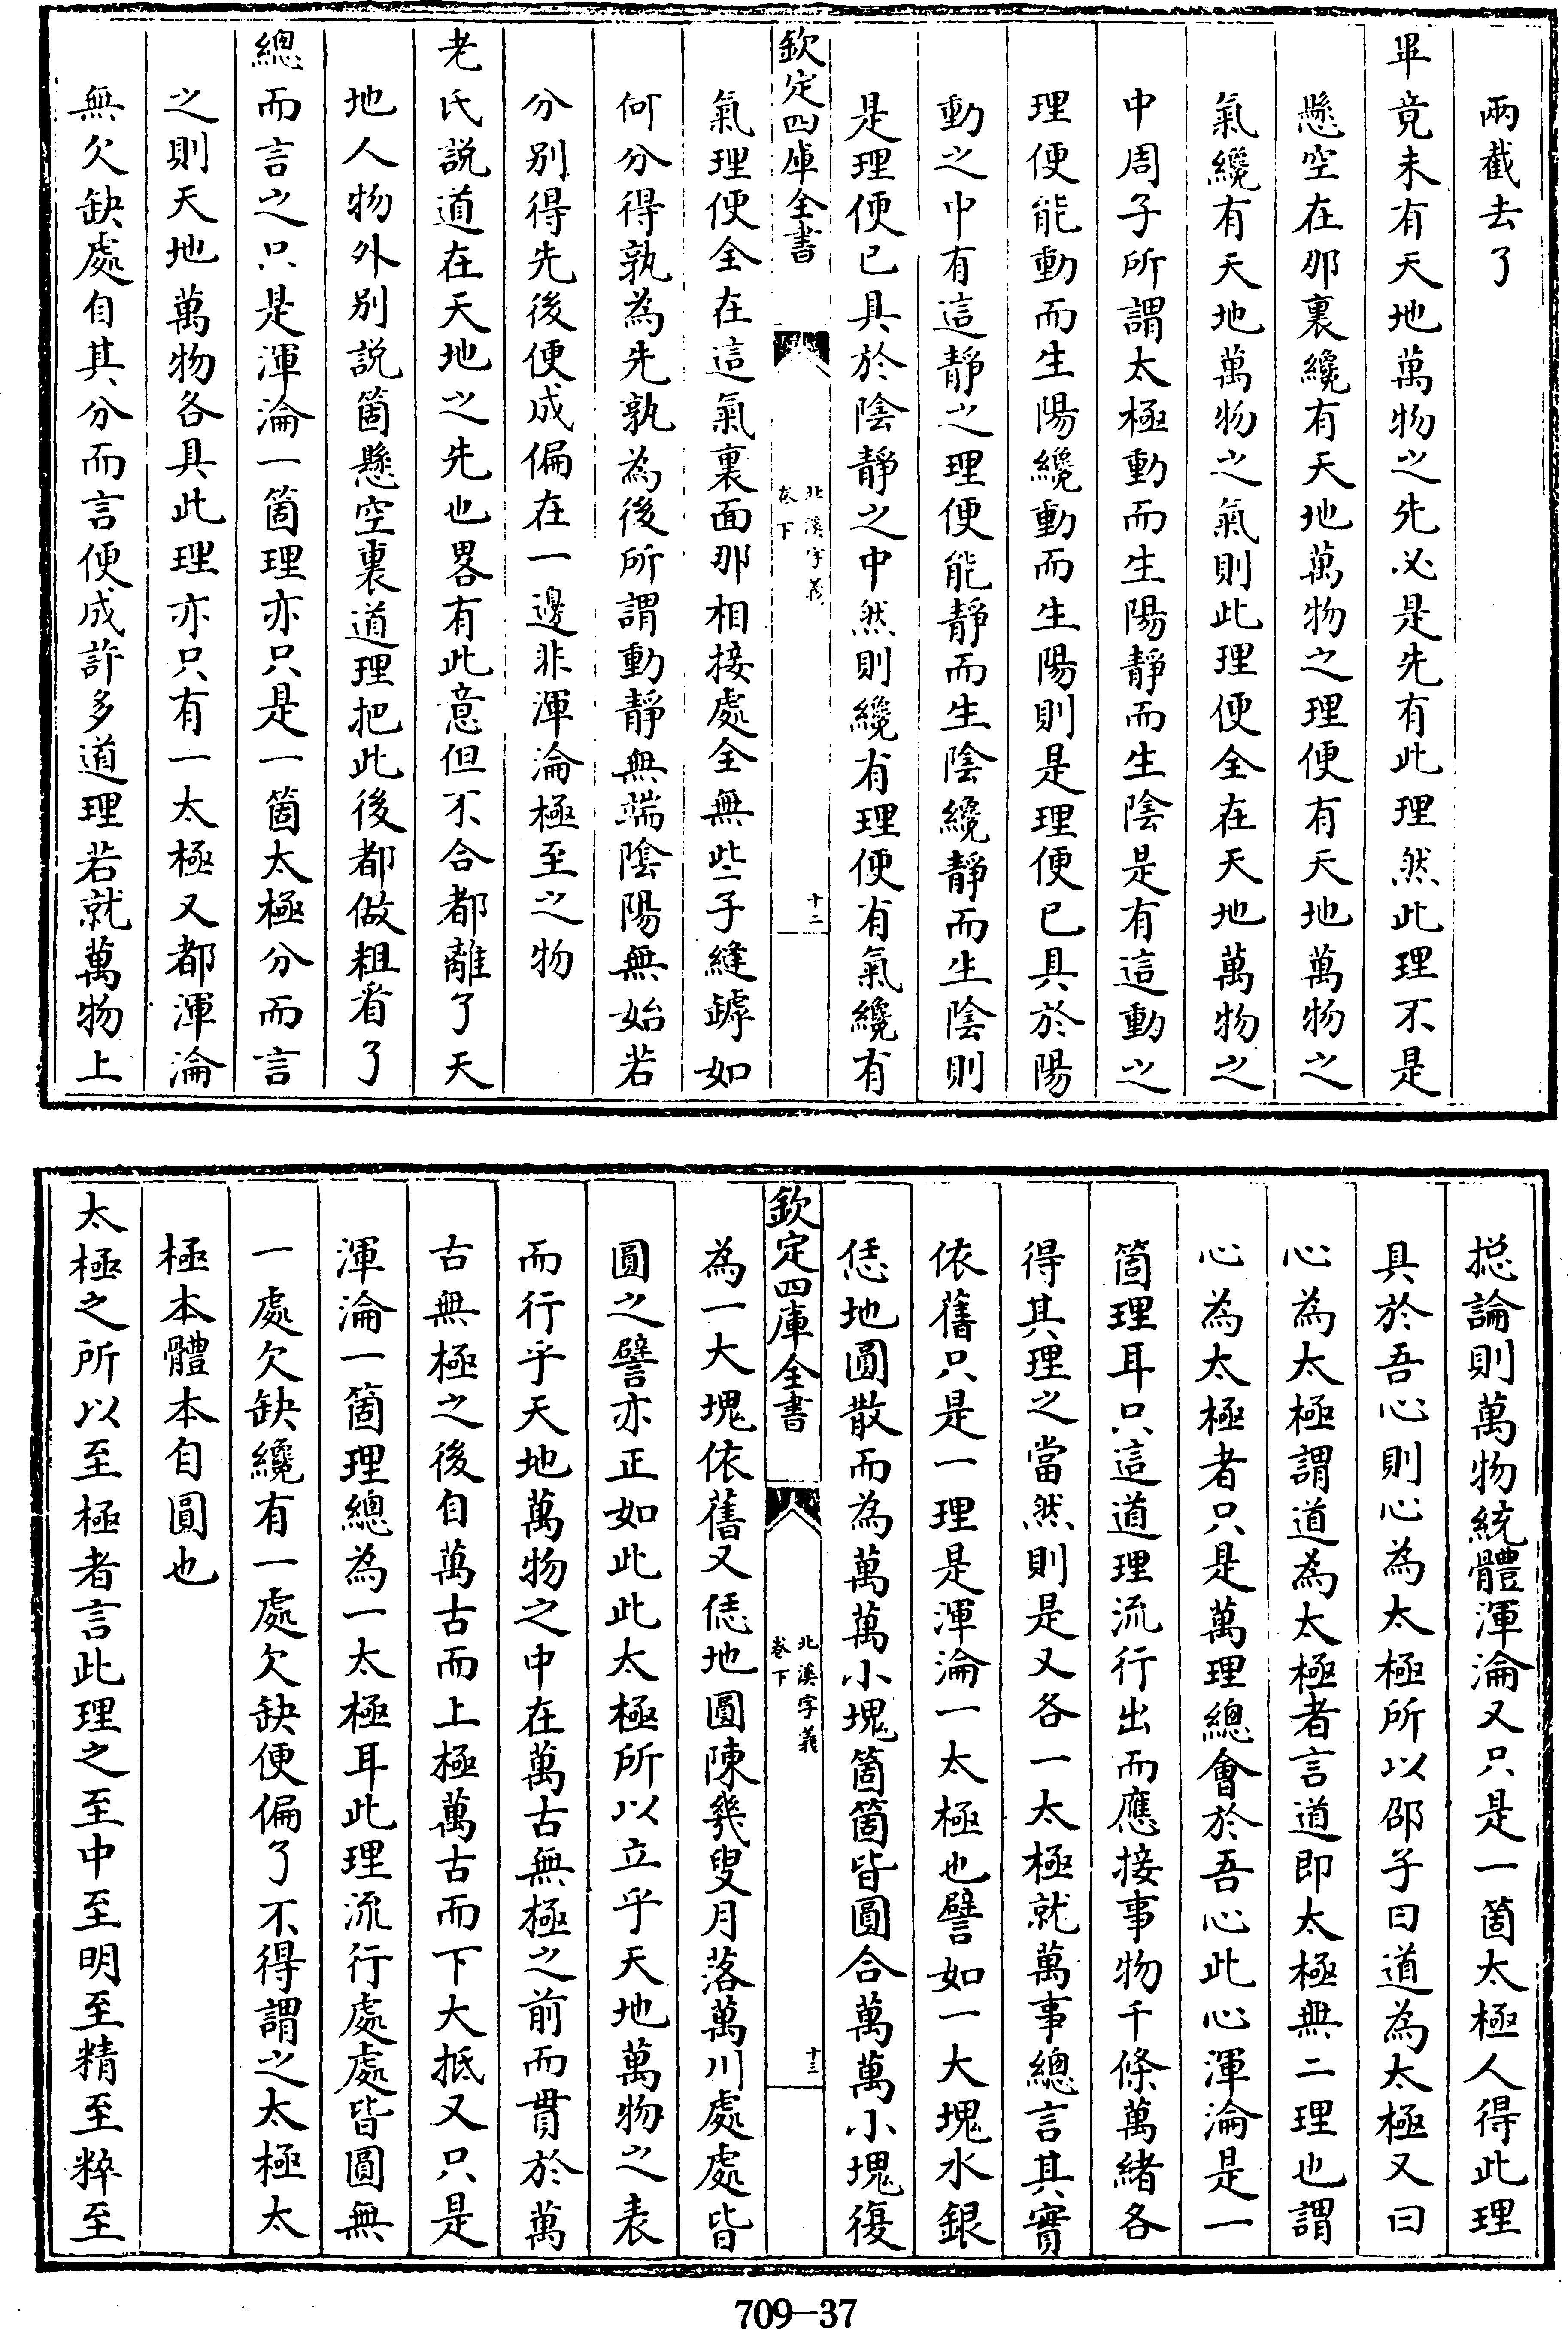 兩截去了
畢竟未有天地萬物之先必是先有此理然此理不是
懸空在那裏纔有天地萬物之理便有天地萬物之
氣纔有天地萬物之氣則此理便全在天地萬物之
中周子所謂太極動而生陽靜而生陰是有這動之
理便能動而生陽纔動而生陽則是理便已具於陽
動之中有這靜之理便能靜而生陰纔靜而生陰則
是理便已具於陰靜之中然則纔有理便有氣纔有
欽定四庫全書
北溪字義
卷下
十二
氣理便全在這氣裏面那相接處全無些子縫罅如
何分得孰為先孰為後所謂動靜無端陰陽無始若
分别得先後便成偏在一邊非渾淪極至之物
老氏説道在天地之先也畧有此意但不合都離了天
地人物外别説箇懸空裏道理把此後都做粗看了
總而言之只是渾淪一箇理亦只是一箇太極分而言
之則天地萬物各具此理亦只有一太極又都渾淪
無欠缺處自其分而言便成許多道理若就萬物上
摠論則萬物統體渾淪又只是一箇太極人得此理
具於吾心則心為太極所以邵子曰道為太極又曰
心為太極謂道為太極者言道即太極無二理也謂
心為太極者只是萬理總會於吾心此心渾淪是一
箇理耳只這道理流行出而應接事物千條萬緒各
得其理之當然則是又各一太極就萬事總言其實
依舊只是一理是渾淪一太極也譬如一大塊水銀
恁地圓散而為萬萬小塊箇箇皆圓合萬萬小塊復
欽定四庫全書
北溪字義
卷下
十三
為一大塊依舊又恁地圓陳幾叟月落萬川處處皆
圓之譬亦正如此此太極所以立乎天地萬物之表
而行乎天地萬物之中在萬古無極之前而貫於萬
古無極之後自萬古而上極萬古而下大抵又只是
渾淪一箇理總為一太極耳此理流行處處皆圓無
一處欠缺纔有一處欠缺便偏了不得謂之太極太
極本體本自圓也
太極之所以至極者言此理之至中至明至精至粹至
709-37